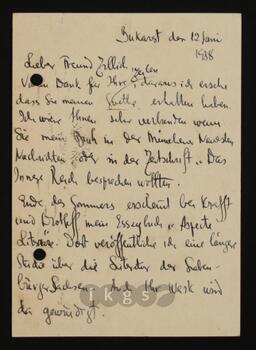 Bukarest den 12 Juni
1938
Lieber Freund Zillich
Vielen Dank für Ihre Zeilen, daraus ich ersehe
dass Sie meinen Goethe erhalten haben.
Ich wäre Ihnen sehr verbunden wenn
Sie mein Buch in der Münchener Neuesten
Nachrichten oder in der Zeitschrift „Das
Innere Reich besprechen wollten.
Ende des Sommers erscheint bei Krafft
und Drotleff mein Essaybuch „Aspecte
Literare". Dort veröffentliche ich eine längere
Studie über die Literatur der Sieben-
bürger Sachsen. Auch Ihr Werk wird
da gewürdigt.
ikgs